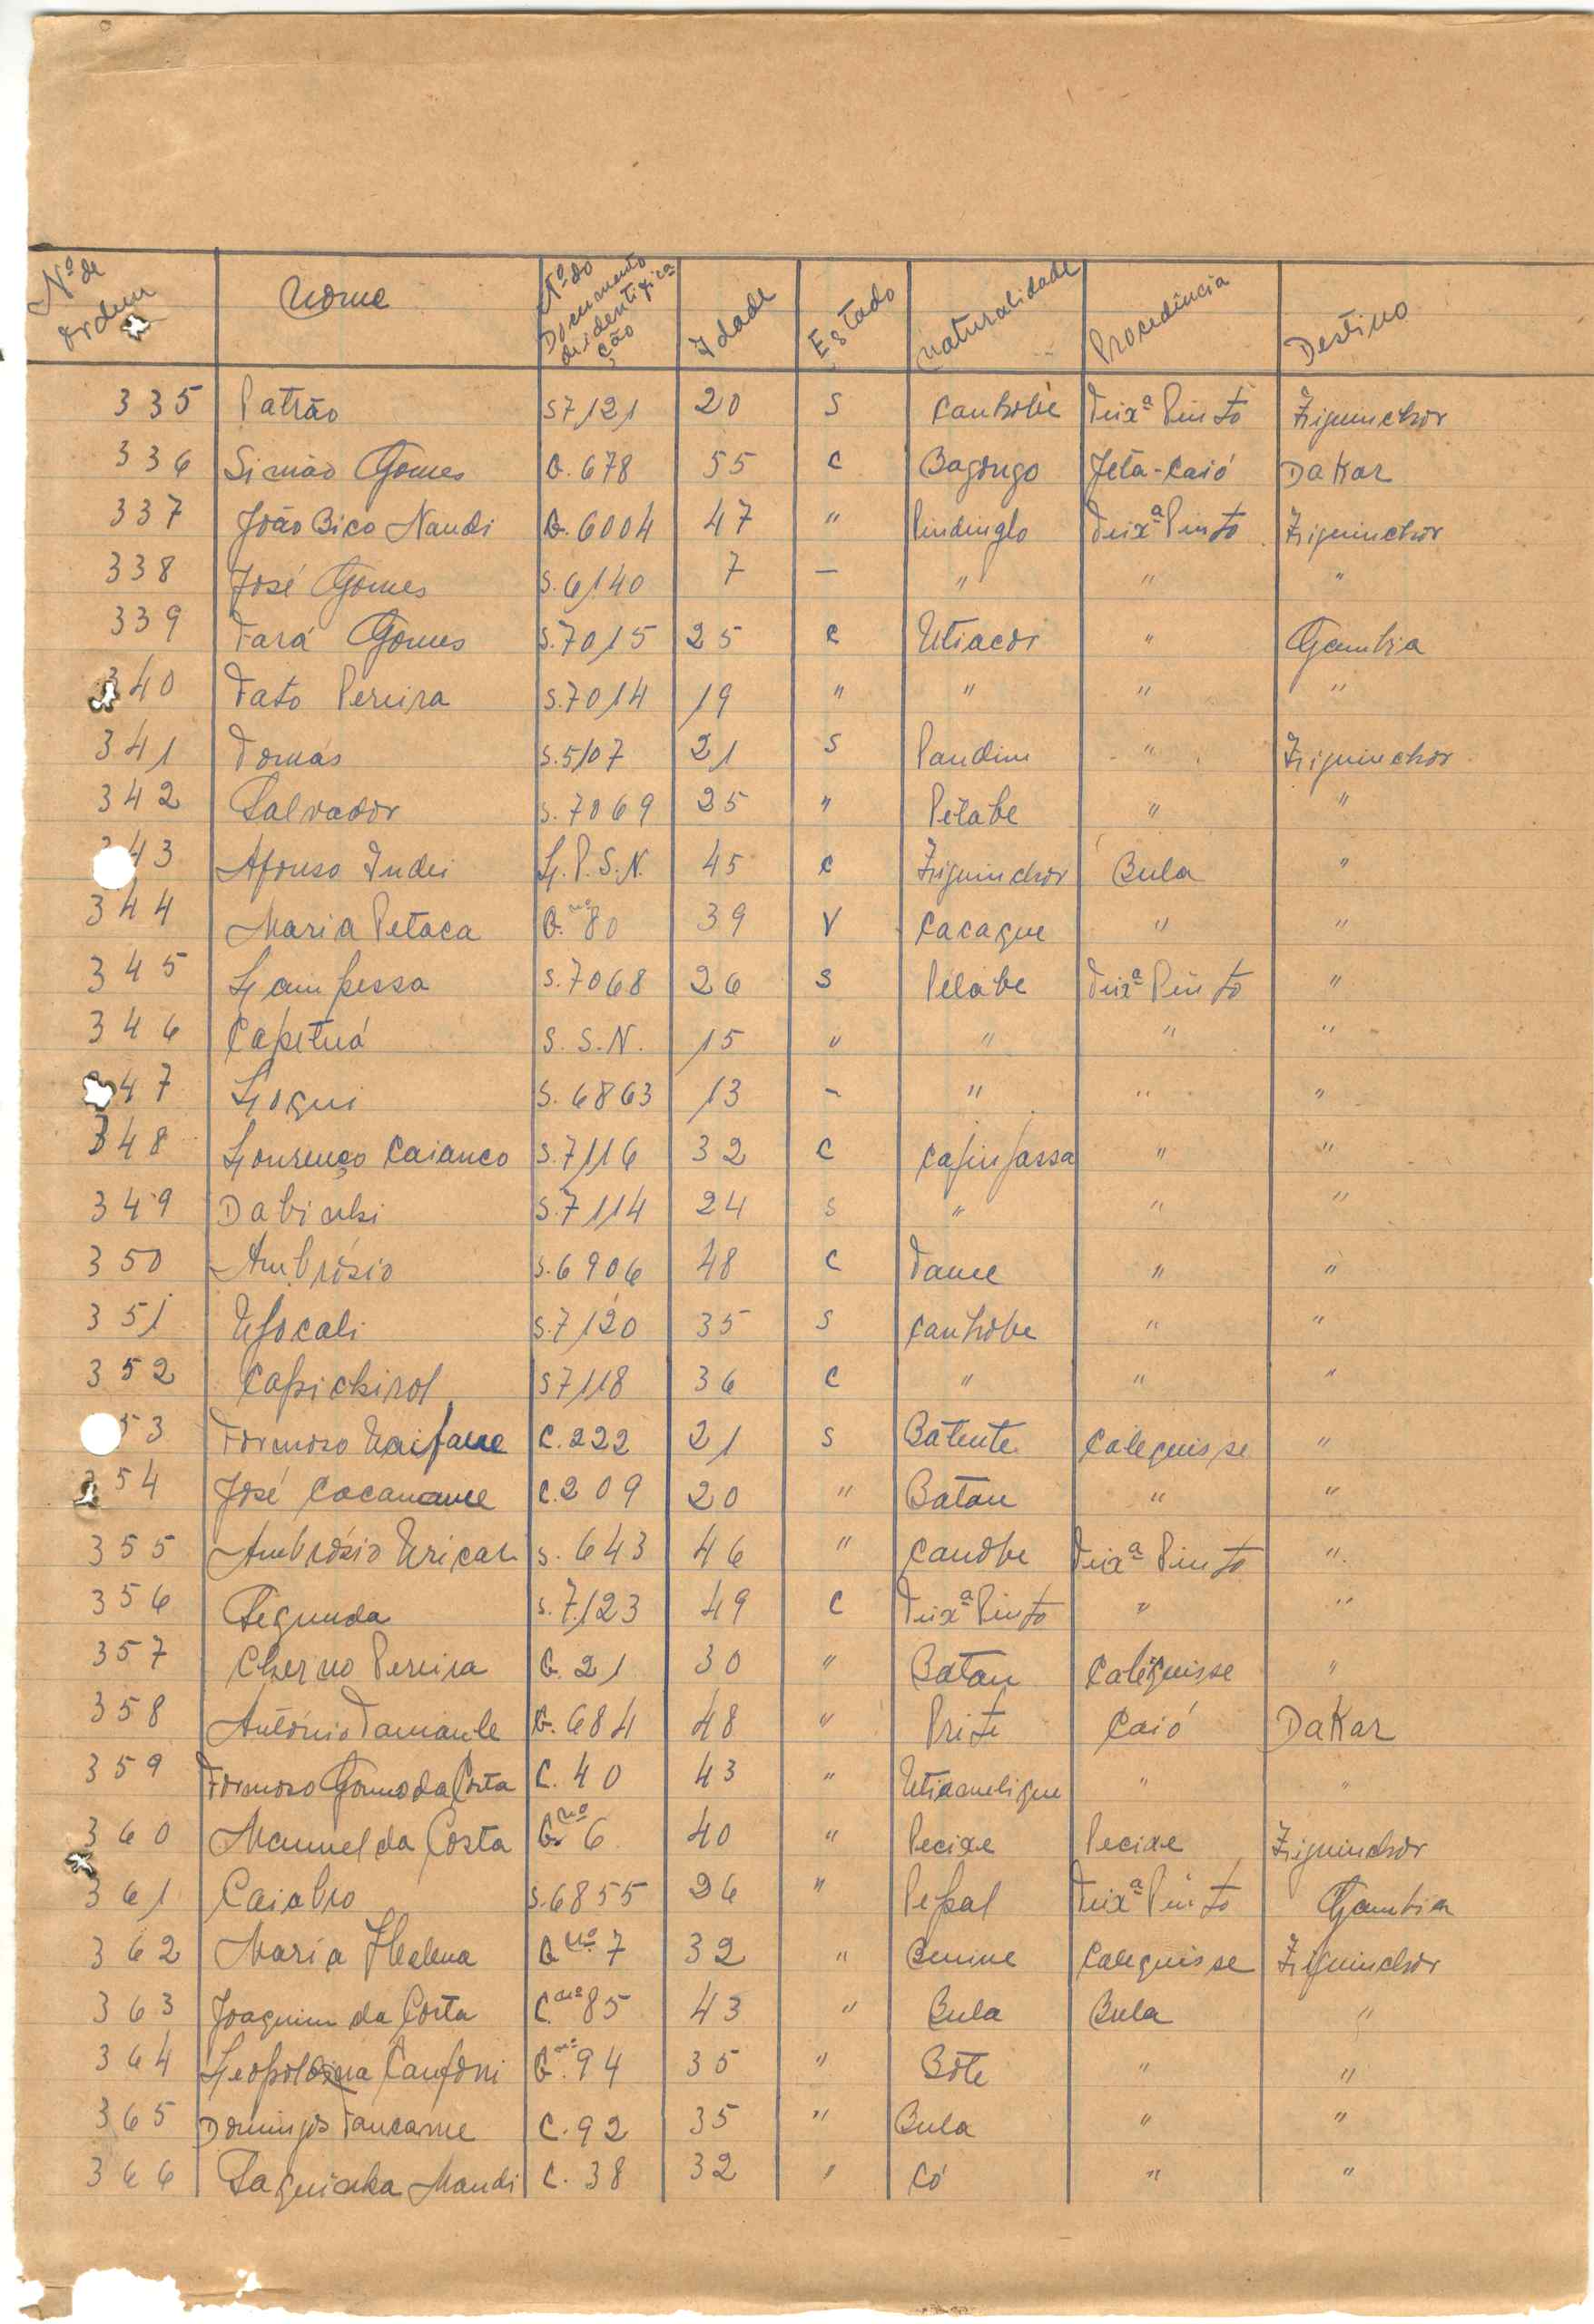 Nº de Ordem | Nome | Nº do Documento de identificação | Idade | Estado | Naturalidade | Procedência | Destino
335 Patrão S7121 20 S Canhobé Teixª Pinto Ziguinchor
336 Simão Gomes G. 678 55 C Bagongo Jeta-Caió Dakar
337 João Bico Nandi G. 6004 47 " Pindinglo Teixª Pinto Ziguinchor
338 José Gomes S. 6140 7 — " " "
339 Tará Gomes S. 7015 25 C Utiacor " Gambia
340 Tato Pereira S. 7014 19 " " " "
341 Tomás S. 5107 21 S Pandim " Ziguinchor
342 Salvador S. 7069 25 " Petabe " "
43 Afonso Indei L. P. S. N. 45 C Ziguinchor Bula "
344 Maria Petaca G. nº 80 39 V Cacague " "
345 Lampessa S. 7068 26 S Pelabe Teixª Pinto "
346 Capetuá S. S. N. 15 " " " "
347 Logui S. 6863 13 - " " "
348 Lourenço Caianco S. 7116 32 C Capinpassa " "
349 Dabinhi S. 7114 24 S " " "
350 Ambrósio S. 6906 48 C Tame " "
351 Upocali S. 7120 35 S Canhobe " "
352 Capichirol S7118 36 C " " "
53 Formoso Naifane C. 222 21 S Batente Calequisse "
354 José Cacaname C. 209 20 " Batau " "
355 Ambrósio Uricar S. 643 46 " Canobe Teixª Pinto "
356 Segunda S. 7123 49 C Teixª Pinto " "
357 Cherno Pereira G. 21 30 " Batau Calequisse "
358 António Tamante G. 684 48 " Prite Caió Dakar
359 Formoso Gomes da Costa C. 40 43 " Utiameligue " "
360 Manuel da Costa G. nº 6 40 " Pecixe Pecixe Ziguinchor
361 Caiabro S. 6855 26 " Pepal Teixª Pinto Gambia
362 Maria Helena G nº 7 32 " Benine Calequisse Ziguinchor
363 Joaquim da Costa C. nº 85 43 " Bula Bula "
364 Leopoldina Canfoni G. nº 94 35 " Bote " "
365 Domingos Tancarne C. 92 35 " Bula " "
366 Saquinha Mandi C. 38 32 " Có " "